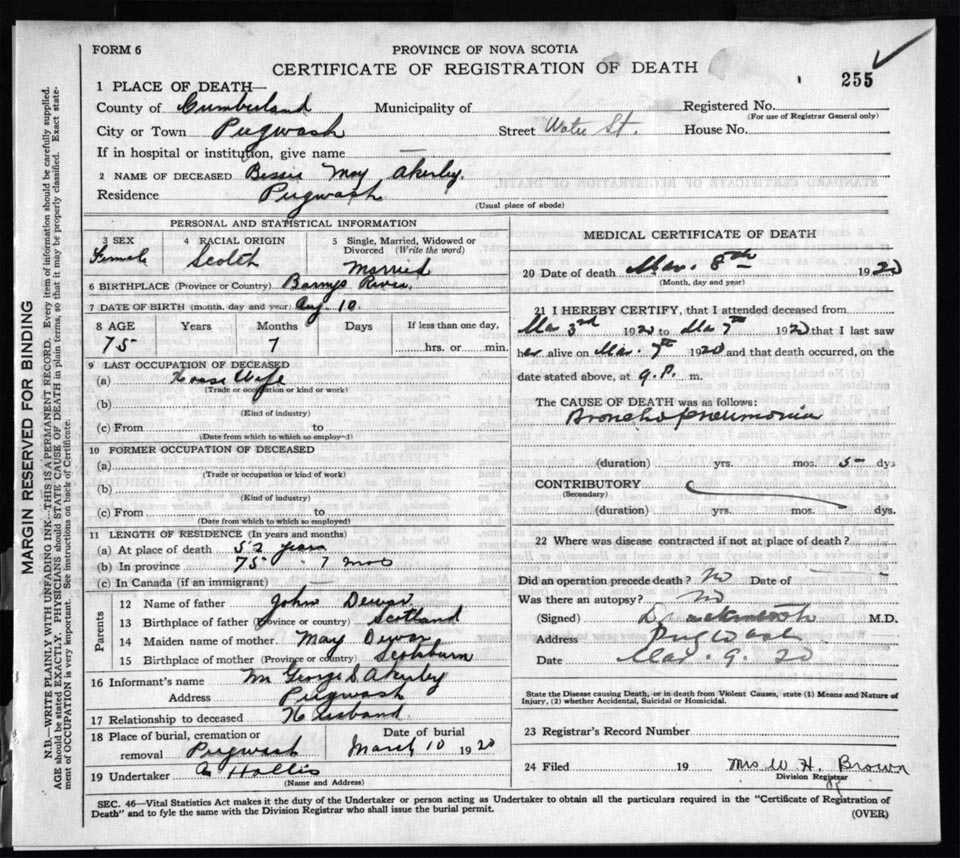 FORM 6
PROVINCE OF NOVA SCOTIA
CERTIFICATE OF REGISTRATION OF DEATH
255
1 PLACE OF DEATH—
County of Cumberland Municipality of Registered No.
(For use of Registrar General only)
City or Town Pugwash Street Water St. House No.
If in hospital or institution, give name —
2 NAME OF DECEASED Bessie May Akerley.
Residence Pugwash
(Usual place of abode)
PERSONAL AND STATISTICAL INFORMATION
3 SEX 4 RACIAL ORIGIN 5 Single, Married, Widowed or Divorced (Write the word)
Female Scotch Married
6 BIRTHPLACE (Province or Country) Barnys River.
7 DATE OF BIRTH (month, day and year) Aug 10.
8 AGE Years Months Days If less than one day,
75 7 hrs. or min.
9 LAST OCCUPATION OF DECEASED
(a) House Wife
(Trade or occupation or kind or work)
(b)
(Kind of industry)
(c) From to
(Date from which to which so employ-1)
10 FORMER OCCUPATION OF DECEASED
(a)
(Trade or occupation or kind of work)
(b)
(Kind of industry)
(c) From to
(Date from which to which so employed)
11 LENGTH OF RESIDENCE (In years and months)
(a) At place of death 52 years
(b) In province 75 - 7 mos
(c) In Canada (if an immigrant) —
Parents
12 Name of father John Dewar
13 Birthplace of father (Province or country) Scotland
14 Maiden name of mother May Dewar
15 Birthplace of mother (Province or country)
16 Informant's name Mr George D Akerley
Address Pugwash
17 Relationship to deceased Husband
18 Place of burial, cremation or removal Pugwash Date of burial March 10 1920
19 Undertaker A Hollis
(Name and Address)
MEDICAL CERTIFICATE OF DEATH
20 Date of death Mar. 8th 1920
(Month, day and year)
21 I HEREBY CERTIFY, that I attended deceased from
Ma 3rd 1920 to Ma 7th 1920 that I last saw
her alive on Mar. 7th 1920 and that death occurred, on the
date stated above, at 9. P. m.
The CAUSE OF DEATH was as follows:
Broncho pneumonia
(duration) yrs. mos. 5 dys
CONTRIBUTORY
(Secondary)
(duration) yrs. mos. dys.
22 Where was disease contracted if not at place of death?
Did an operation precede death? No Date of
Was there an autopsy? No
(Signed) M.D.
Address Pugwash
Date Mar. 9. 20
State the Disease causing Death, or in death from Violent Causes, state (1) Means and Nature of
Injury, (2) whether Accidental, Suicidal or Homicidal.
23 Registrar's Record Number
24 Filed 19 Mrs W. H. Brown
Division Registrar
SEC. 46—Vital Statistics Act makes it the duty of the Undertaker or person acting as Undertaker to obtain all the particulars required in the "Certificate of Registration of
Death" and to fyle the same with the Division Registrar who shall issue the burial permit.
(OVER)
MARGIN RESERVED FOR BINDING
N.B.—WRITE PLAINLY WITH UNFADING INK—THIS IS A PERMANENT RECORD. Every item of information should be carefully supplied.
AGE should be stated EXACTLY. PHYSICIANS should STATE CAUSE OF DEATH in plain terms, so that it may be properly classified. Exact state-
ment of OCCUPATION is very important. See instructions on back of Certificate.